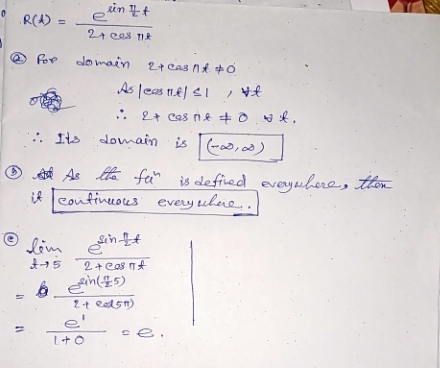 R(t) = e^{sin π/2 t} / 2+ cos πt
ⓐ For domain 2+ cos πt ≠ 0
As |cos πt| ≤ 1 , ∀t
∴ 2+ cos πt ≠ 0 ∀ t.
∴ Its domain is (-∞, ∞)
ⓑ As the fuⁿ is defined everywhere, then
it continuous everywhere.
ⓒ lim t→5 e^{sin π/2 t} / 2 + cos πt
= e^{sin(π/2 5)} / 2+ cos(5π)
= e¹ / 1+0 = e.